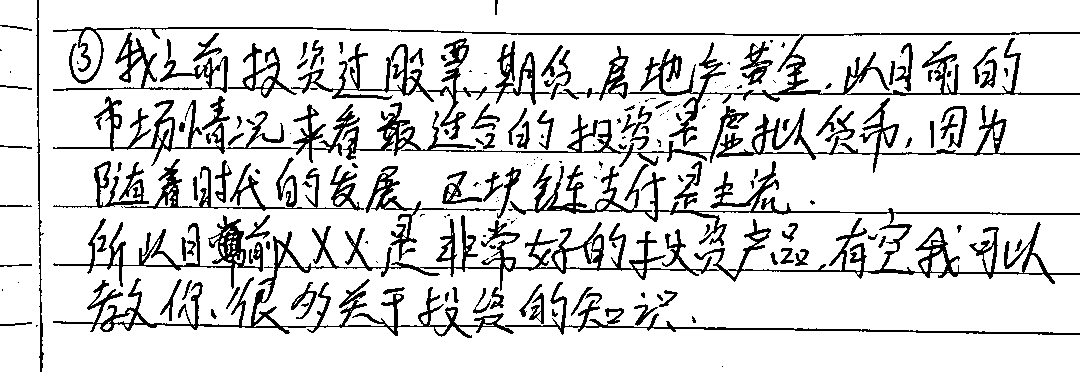 ③我之前投资过股票,期货,房地产,黄金.以目前的
市场情况来看最适合的投资是虚拟货币,因为
随着时代的发展,区块链支付是主流.
所以目前XXX是非常好的投资产品,有空我可以
教你,很多关于投资的知识.